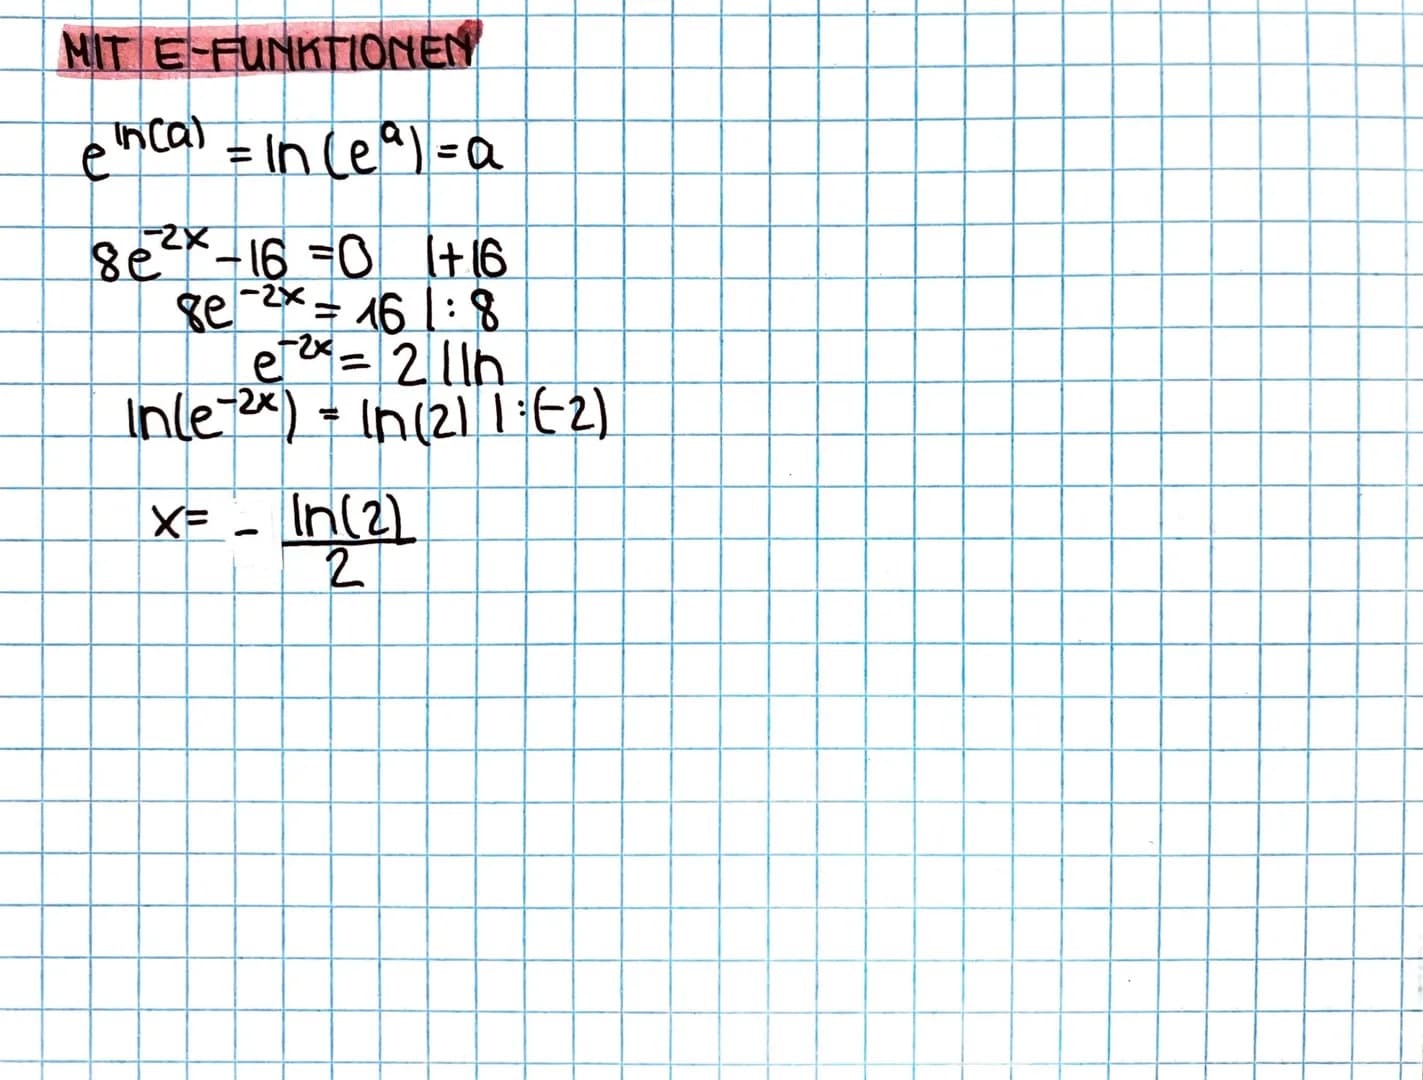 MIT E-FUNKTIONEN
e^ln(a) = ln(e^a) = a
8e^-2x - 16 = 0 |+16
8e^-2x = 16 |: 8
e^-2x = 2 | ln
ln(e^-2x) = ln(2) | :(-2)
x = - ln(2)/2